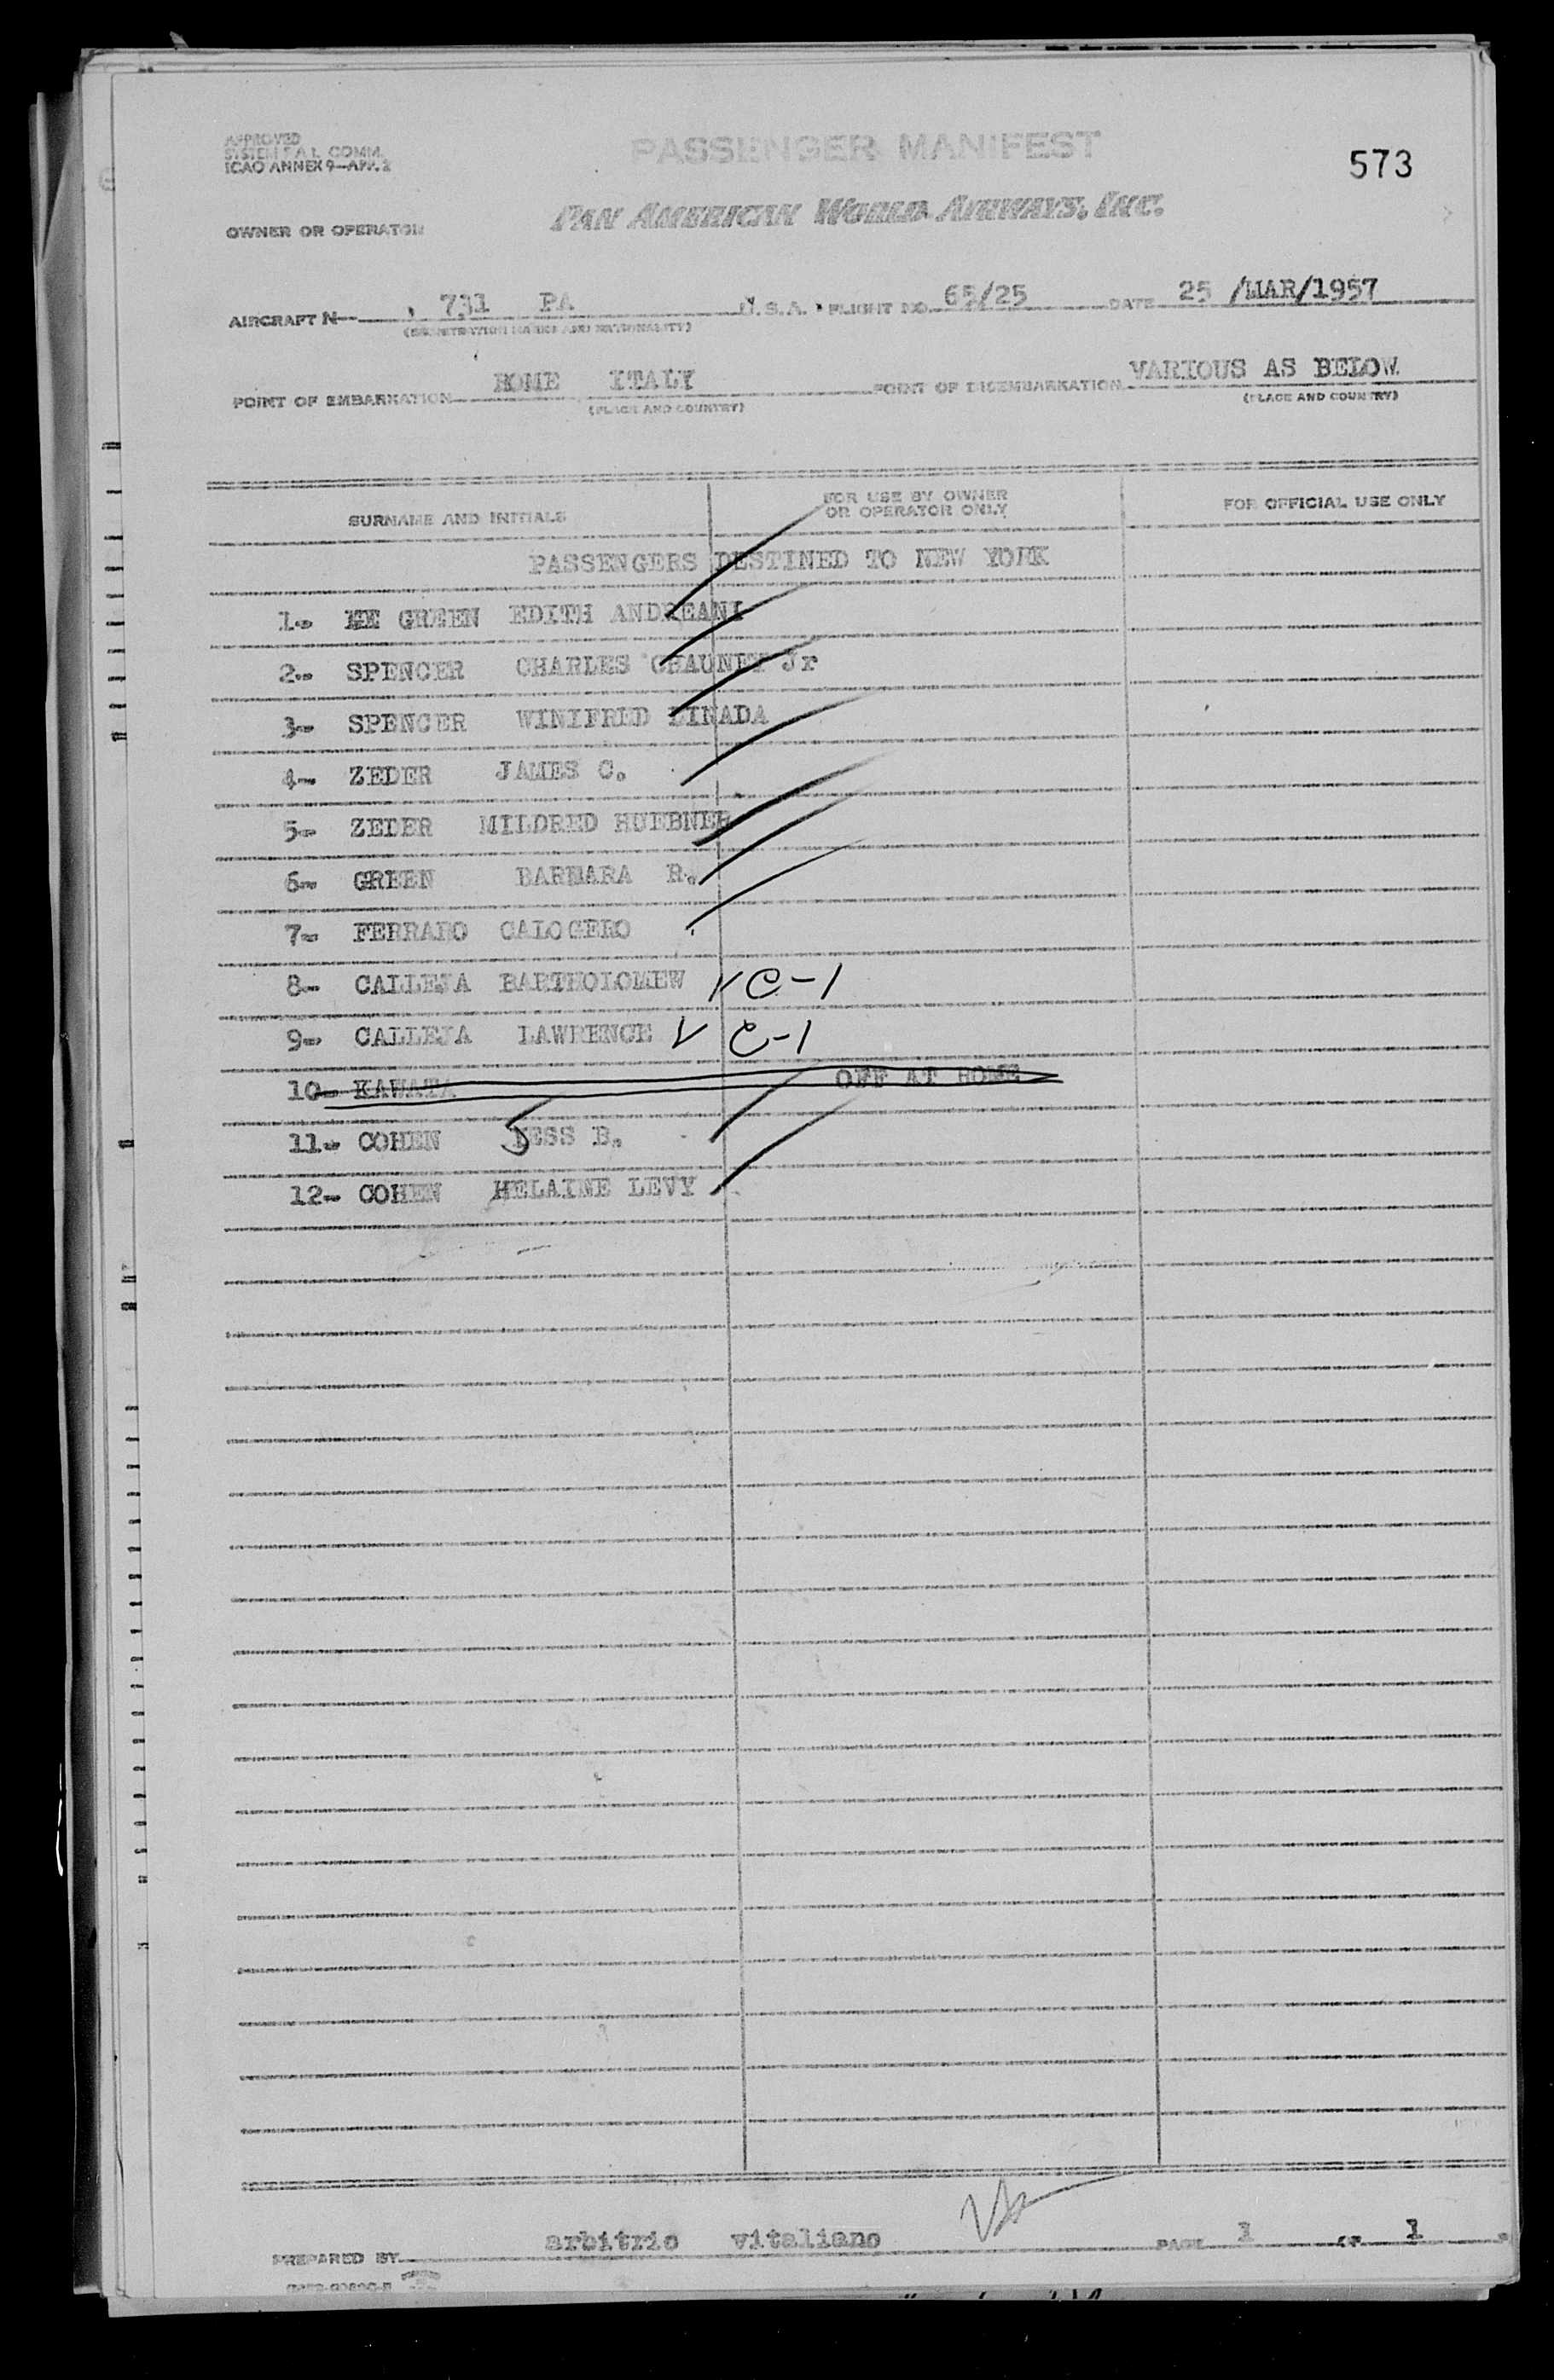 573
APPROVED
SYSTEM F.A.L. COMM.
ICAO ANNEX 9—APP. 2
PASSENGER MANIFEST
OWNER OR OPERATOR
PAN AMERICAN WORLD AIRWAYS, INC.
AIRCRAFT N— 731 PA U.S.A. FLIGHT NO. 65/25 DATE 25 /MAR/1957
(REGISTRATION MARKS AND NATIONALITY)
POINT OF EMBARKATION ROME ITALY POINT OF DISEMBARKATION VARIOUS AS BELOW
(PLACE AND COUNTRY) (PLACE AND COUNTRY)
SURNAME AND INITIALS FOR USE BY OWNER OR OPERATOR ONLY FOR OFFICIAL USE ONLY
PASSENGERS DESTINED TO NEW YORK
1- GREEN EDITH ANDREANI
2- SPENCER CHARLES CHAUNEY Jr
3- SPENCER WINIFRED
4- ZEDER JAMES C.
5- ZEDER MILDRED HUEBNER
6- GREEN BARBARA R.
7- FERRARO CALOGERO
8- CALLEJA BARTHOLOMEW C-1
9- CALLEJA LAWRENCE C-1
10- KAWATA OFF AT ROME
11- COHEN JESS B.
12- COHEN HELAINE LEVY
PREPARED BY arbitrio vitaliano PAGE 1 OF 1